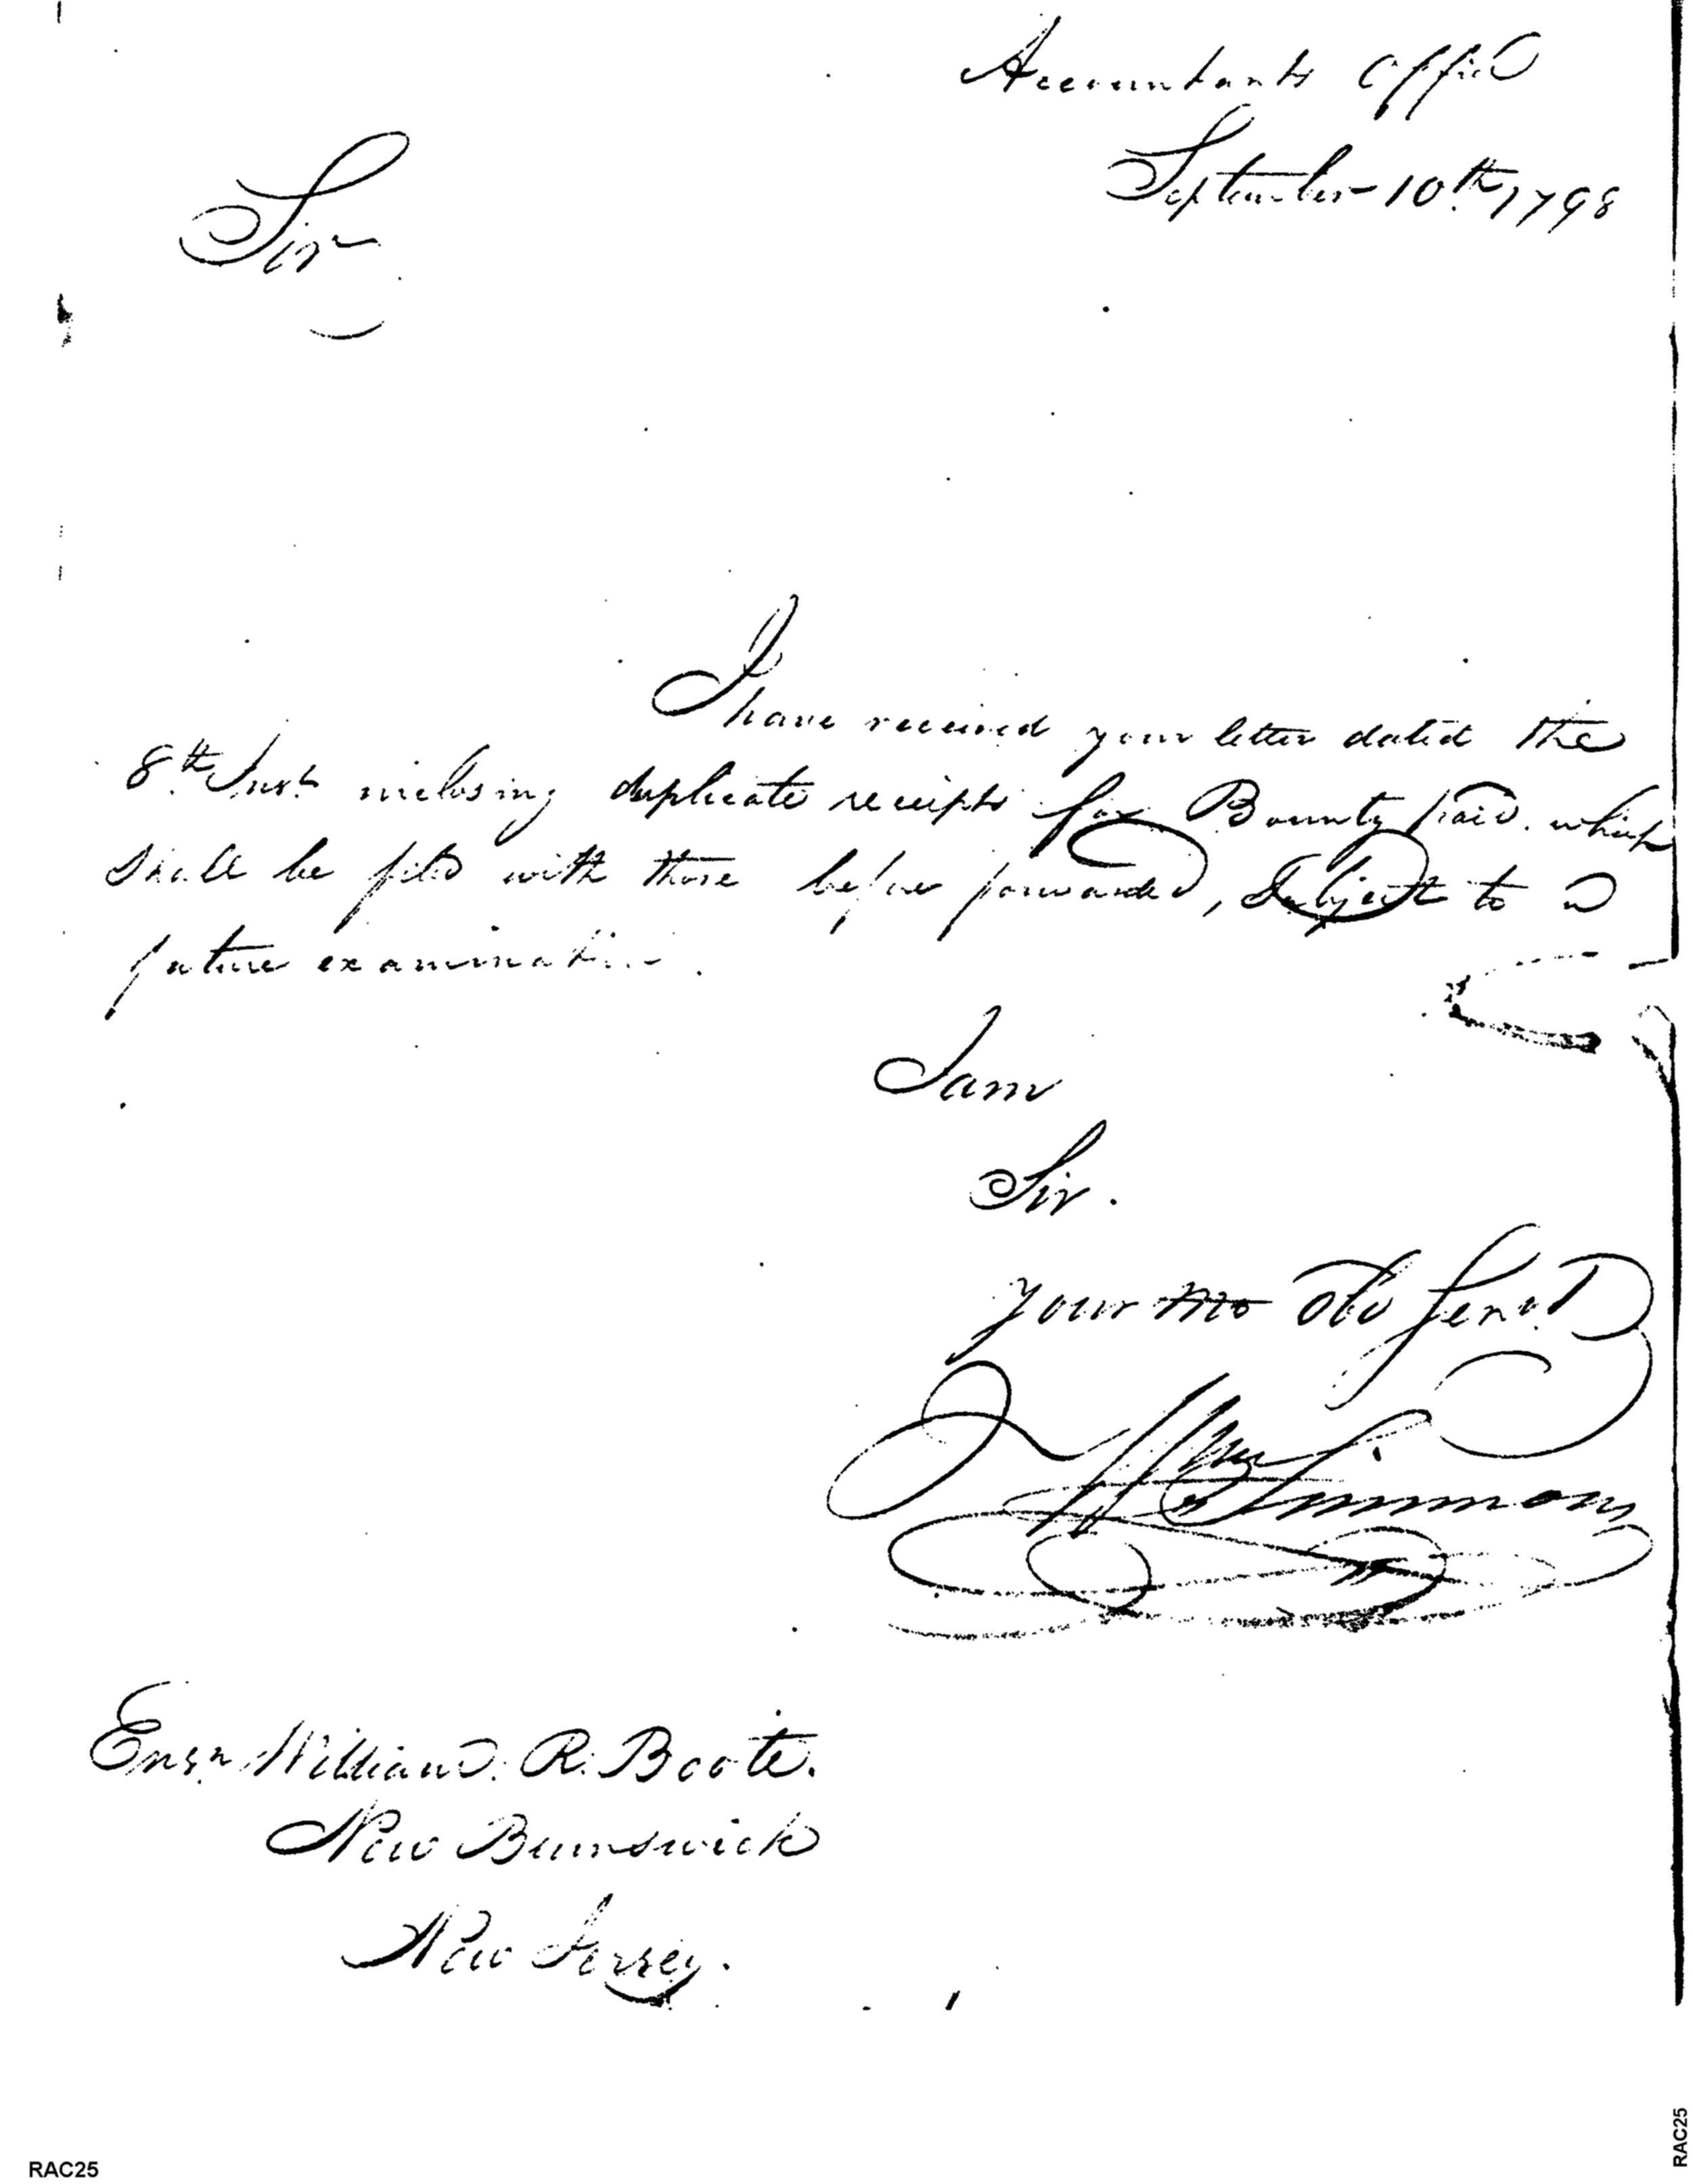 Accountants Office
September 10th, 1798
Sir
I have received your letter dated the
8th Inst. inclosing duplicate receipts for Bounty paid. which
shall be filed with those before forwarded, Subject to a
future examination.
I am
Sir.
your mo ob Servt
Wm Simmons
Ensn. William. R. Boote.
New Brunswick
New Jersey.
RAC25
RAC25